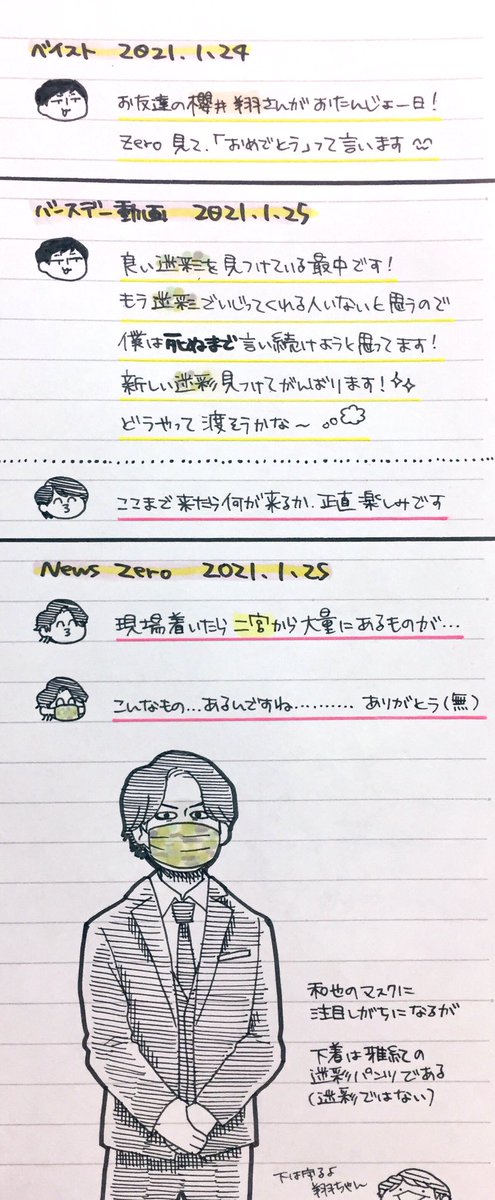 ベイスト 2021.1.24
お友達の櫻井翔さんがおたんじょー日!
Zero見て、「おめでとう」って言います
バースデー動画 2021.1.25
良い迷彩を見つけている最中です!
もう迷彩でいじってくれる人いないと思うので
僕は死ぬまで言い続けようと思ってます!
新しい迷彩見つけてがんばります!
どうやって渡そうかな〜
ここまで来たら何が来るか、正直楽しみです
News Zero 2021.1.25
現場着いたら二宮から大量にあるものが…
こんなもの…あるんですね………… ありがとう(無)
和也のマスクに
注目しがちになるが
下着は雅紀の
迷彩パンツである
(迷彩ではない)
下は守るよ
翔ちゃん